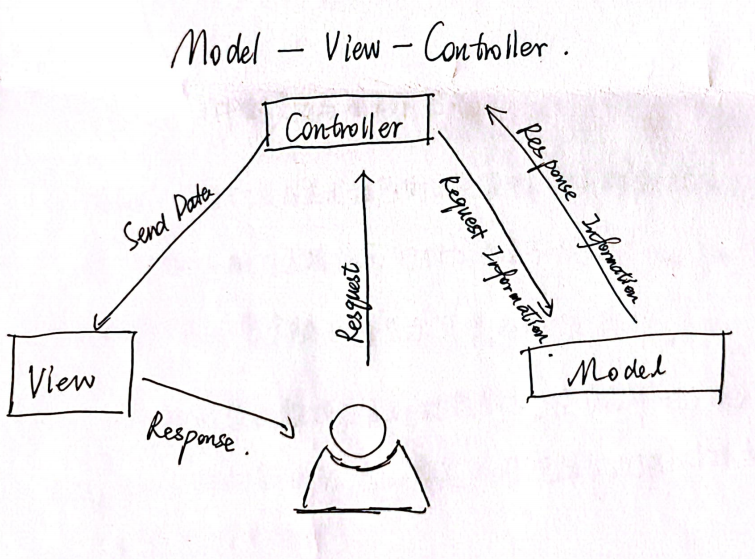 Model - View - Controller.
Controller
Send Data
Resquest
Request Information.
Response Information
View
Response.
Model